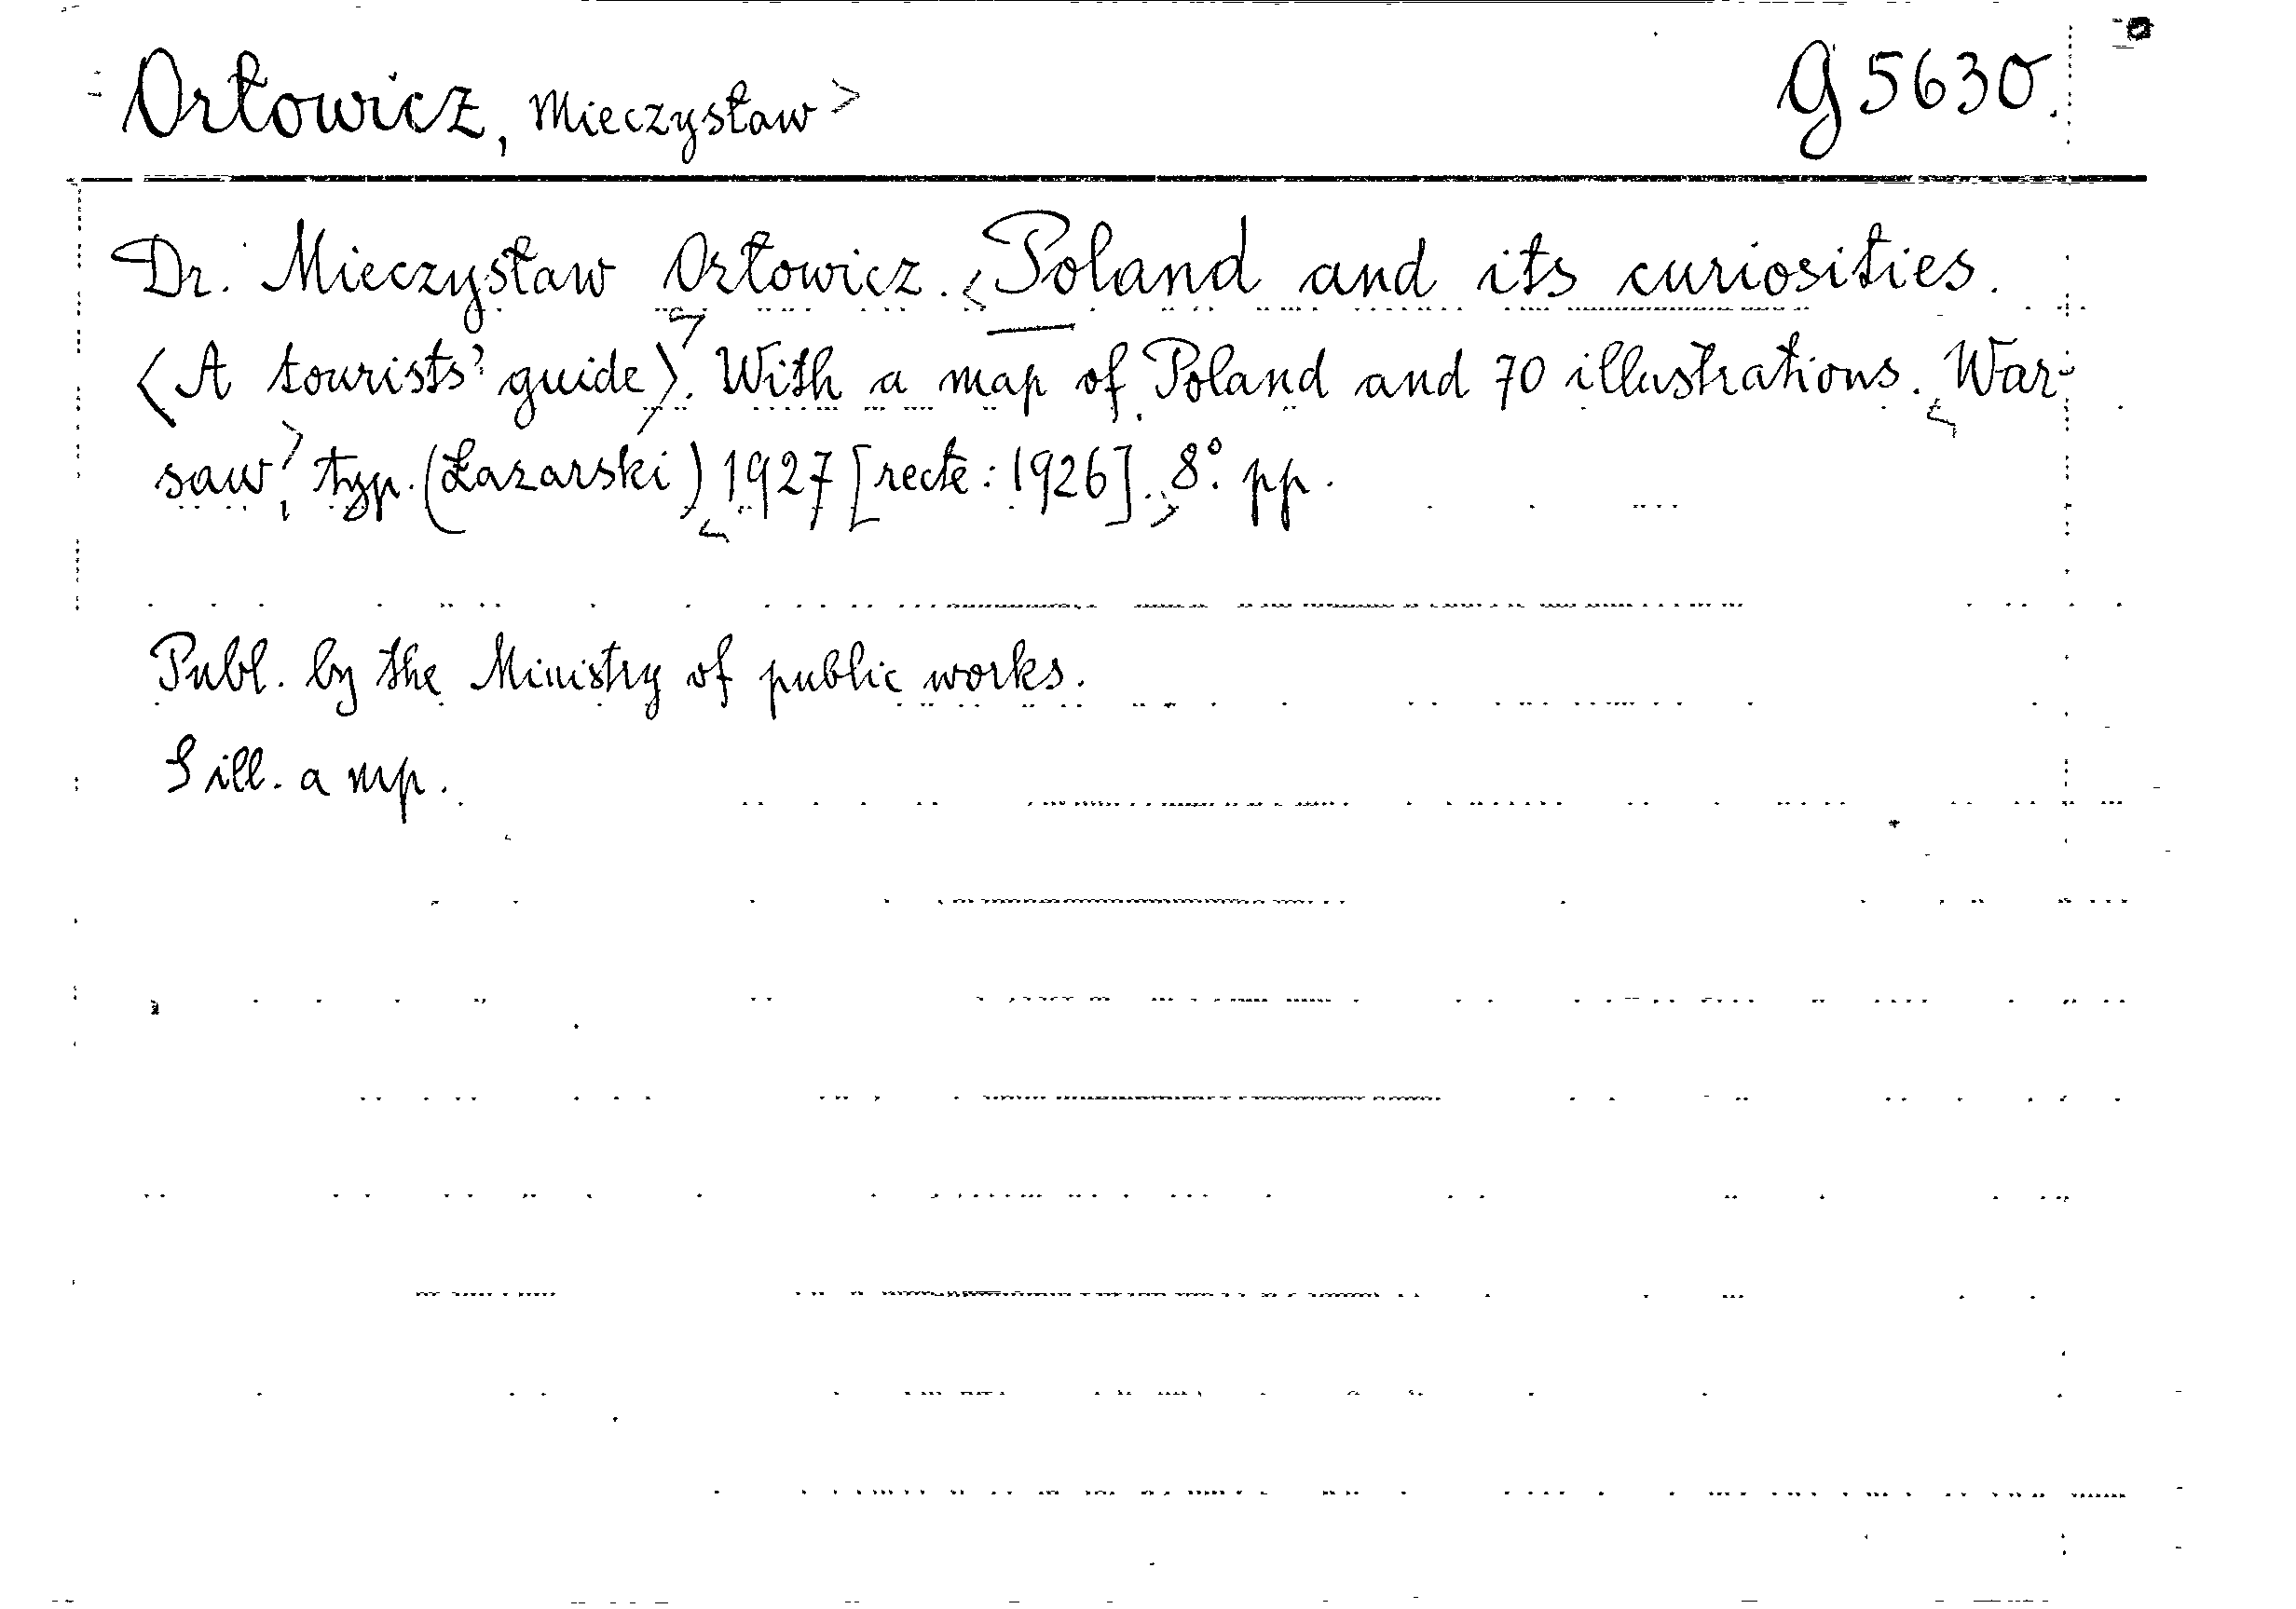 Orłowicz, Mieczysław> G 5630.
Dr. Mieczysław Orłowicz. <Poland and its curiosities.
<A tourists' guide>. With a map of Poland and 70 illustrations. War-
saw, typ. (Łazarski) 1927 [recte: 1926]. 8°. pp.
Publ. by the Ministry of public works.
S ill. a mp.